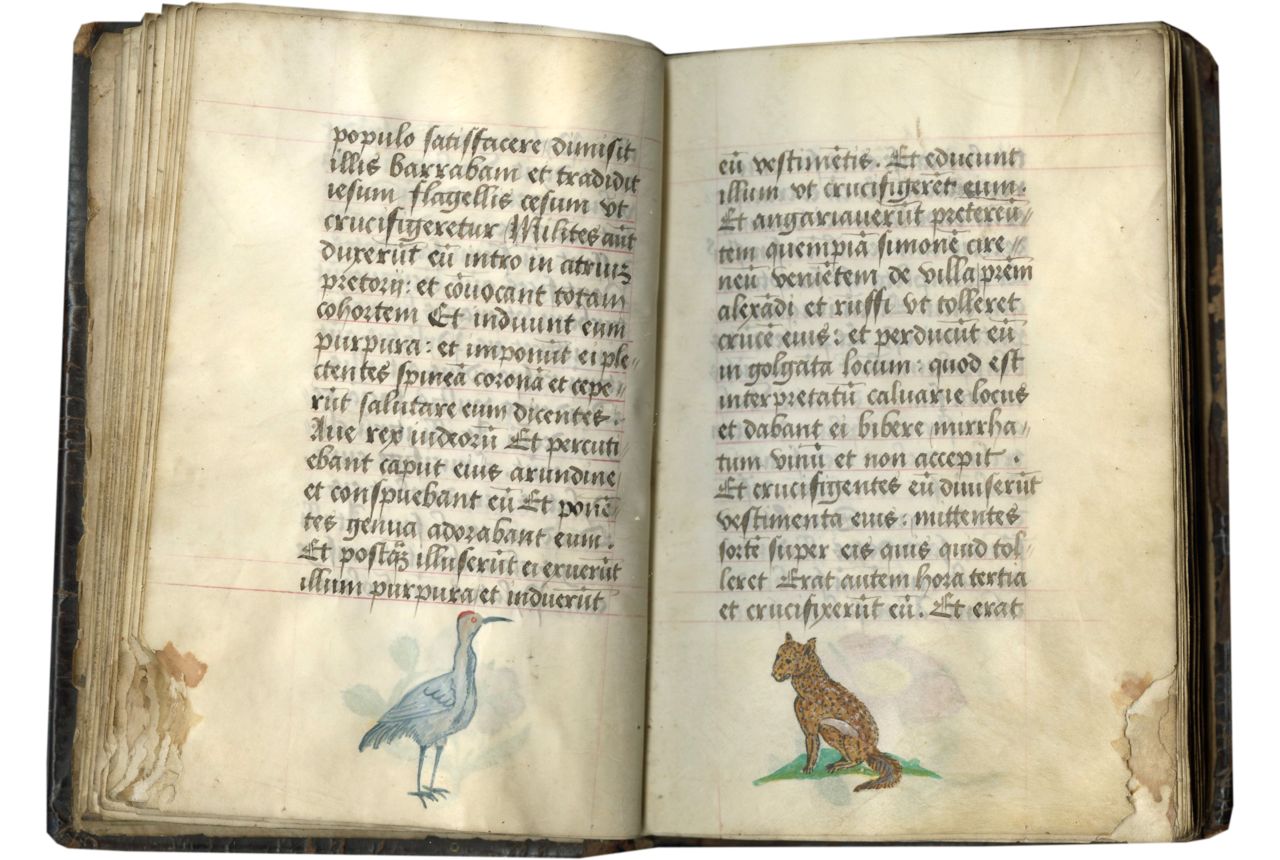 populo satisfacere dimisit
illis barrabam et tradidit
iesum flagellis cesum vt
crucifigeretur Milites aūt
duxerūt eū intro in atriuꝫ
pretorij: et cōuocant totam
cohortem Et induunt eum
purpura: et imponūt ei ple-
ctentes spineā coronā et cepe//
rūt salutare eum dicentes.
Aue rex iudeorū Et percuti
ebant caput eius arundine
et conspuebant eū Et ponē-
tes genua adorabant eum.
Et postq̄ꝫ illuserūt ei exuerūt
illum purpura et induerūt
eū vestimētis. Et educunt
illum vt crucifigerēt eum.
Et angariauerūt pretereū//
tem quempiā simonē cire//
neū veniētem de villa prēm
alexādi et ruffi vt tolleret
crucē eius: et perducūt eū
in golgata locum: quod est
interpretatū caluarie locus
et dabant ei bibere mirrha/
tum vinū et non accepit.
Et crucifigentes eū diuiserūt
vestimenta eius: mittentes
sortē super eis quis quid tol-
leret Erat autem hora tertia
et crucifixerūt eū. Et erat